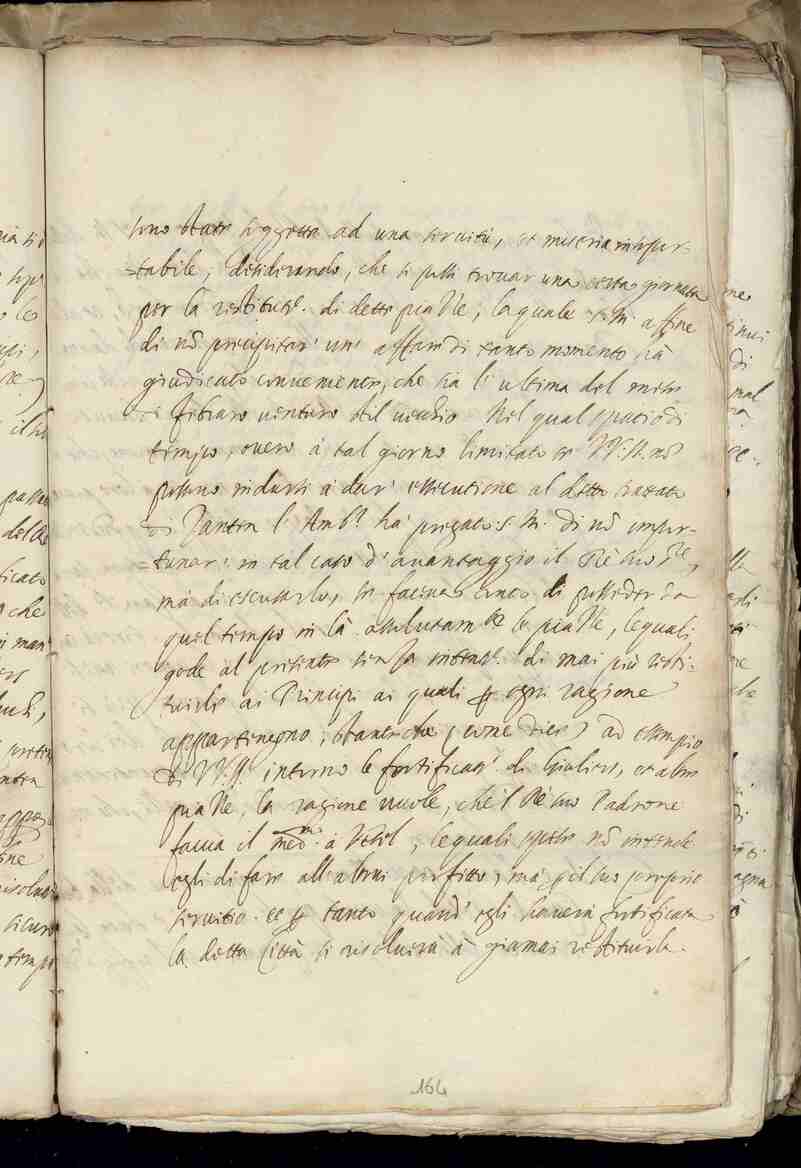 sono state soggette ad una servitù, et miseria insupor-
=tabile; desiderando, che si possi trovar una certa giornata
per la restitut.e di dette piazze, la quale S. M. affine
di nõ precipitar' un' affare di tanto momento hà
giudicato conveniente, che sia l' ultima del mese
di febraro venturo stil vecchio. Nel qual spatio di
tempo, overo à tal giorno limitato se VV. SS. nõ
possono ridursi à dar' essecutione al detto trattato
di Santen l' Amb.r hà pregato S. M. di nõ impor-
=tunar' in tal caso d' avantaggio il Rè suo S.re,
mà di escusarlo, se facesse conto di posseder da
quel tempo in là assolutam.te le piazze, le quali
gode al presente senza intent.e di mai più resti-
tuirle ai Principi ai quali ꝑ ogni ragione
appartengono; stante che (come dice) ad essempio
di VV. SS. intorno le fortificat.i di Giuliers, et altre
piazze, la ragione vuole, che 'l Rè suo Padrone
faccia il med.mo à Vesel, le quali spese nõ intende
egli di fare all' altrui profitto, mà ꝑ il suo proprio
servitio. et ꝑ tanto quand' egli haverà fortificata
la detta Città si risolverà à giamai restituirla.
164